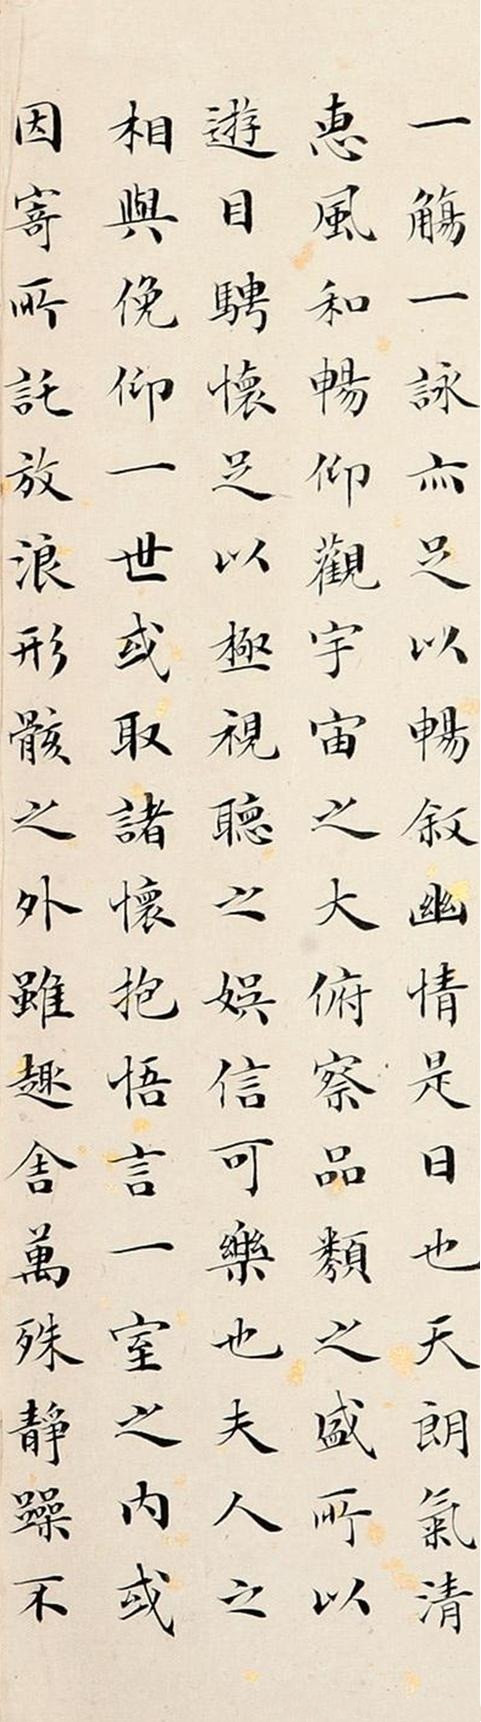 一觴一詠亦足以暢敘幽情是日也天朗氣清
惠風和暢仰觀宇宙之大俯察品類之盛所以
遊目騁懷足以極視聽之娛信可樂也夫人之
相與俛仰一世或取諸懷抱悟言一室之內或
因寄所託放浪形骸之外雖趣舍萬殊靜躁不